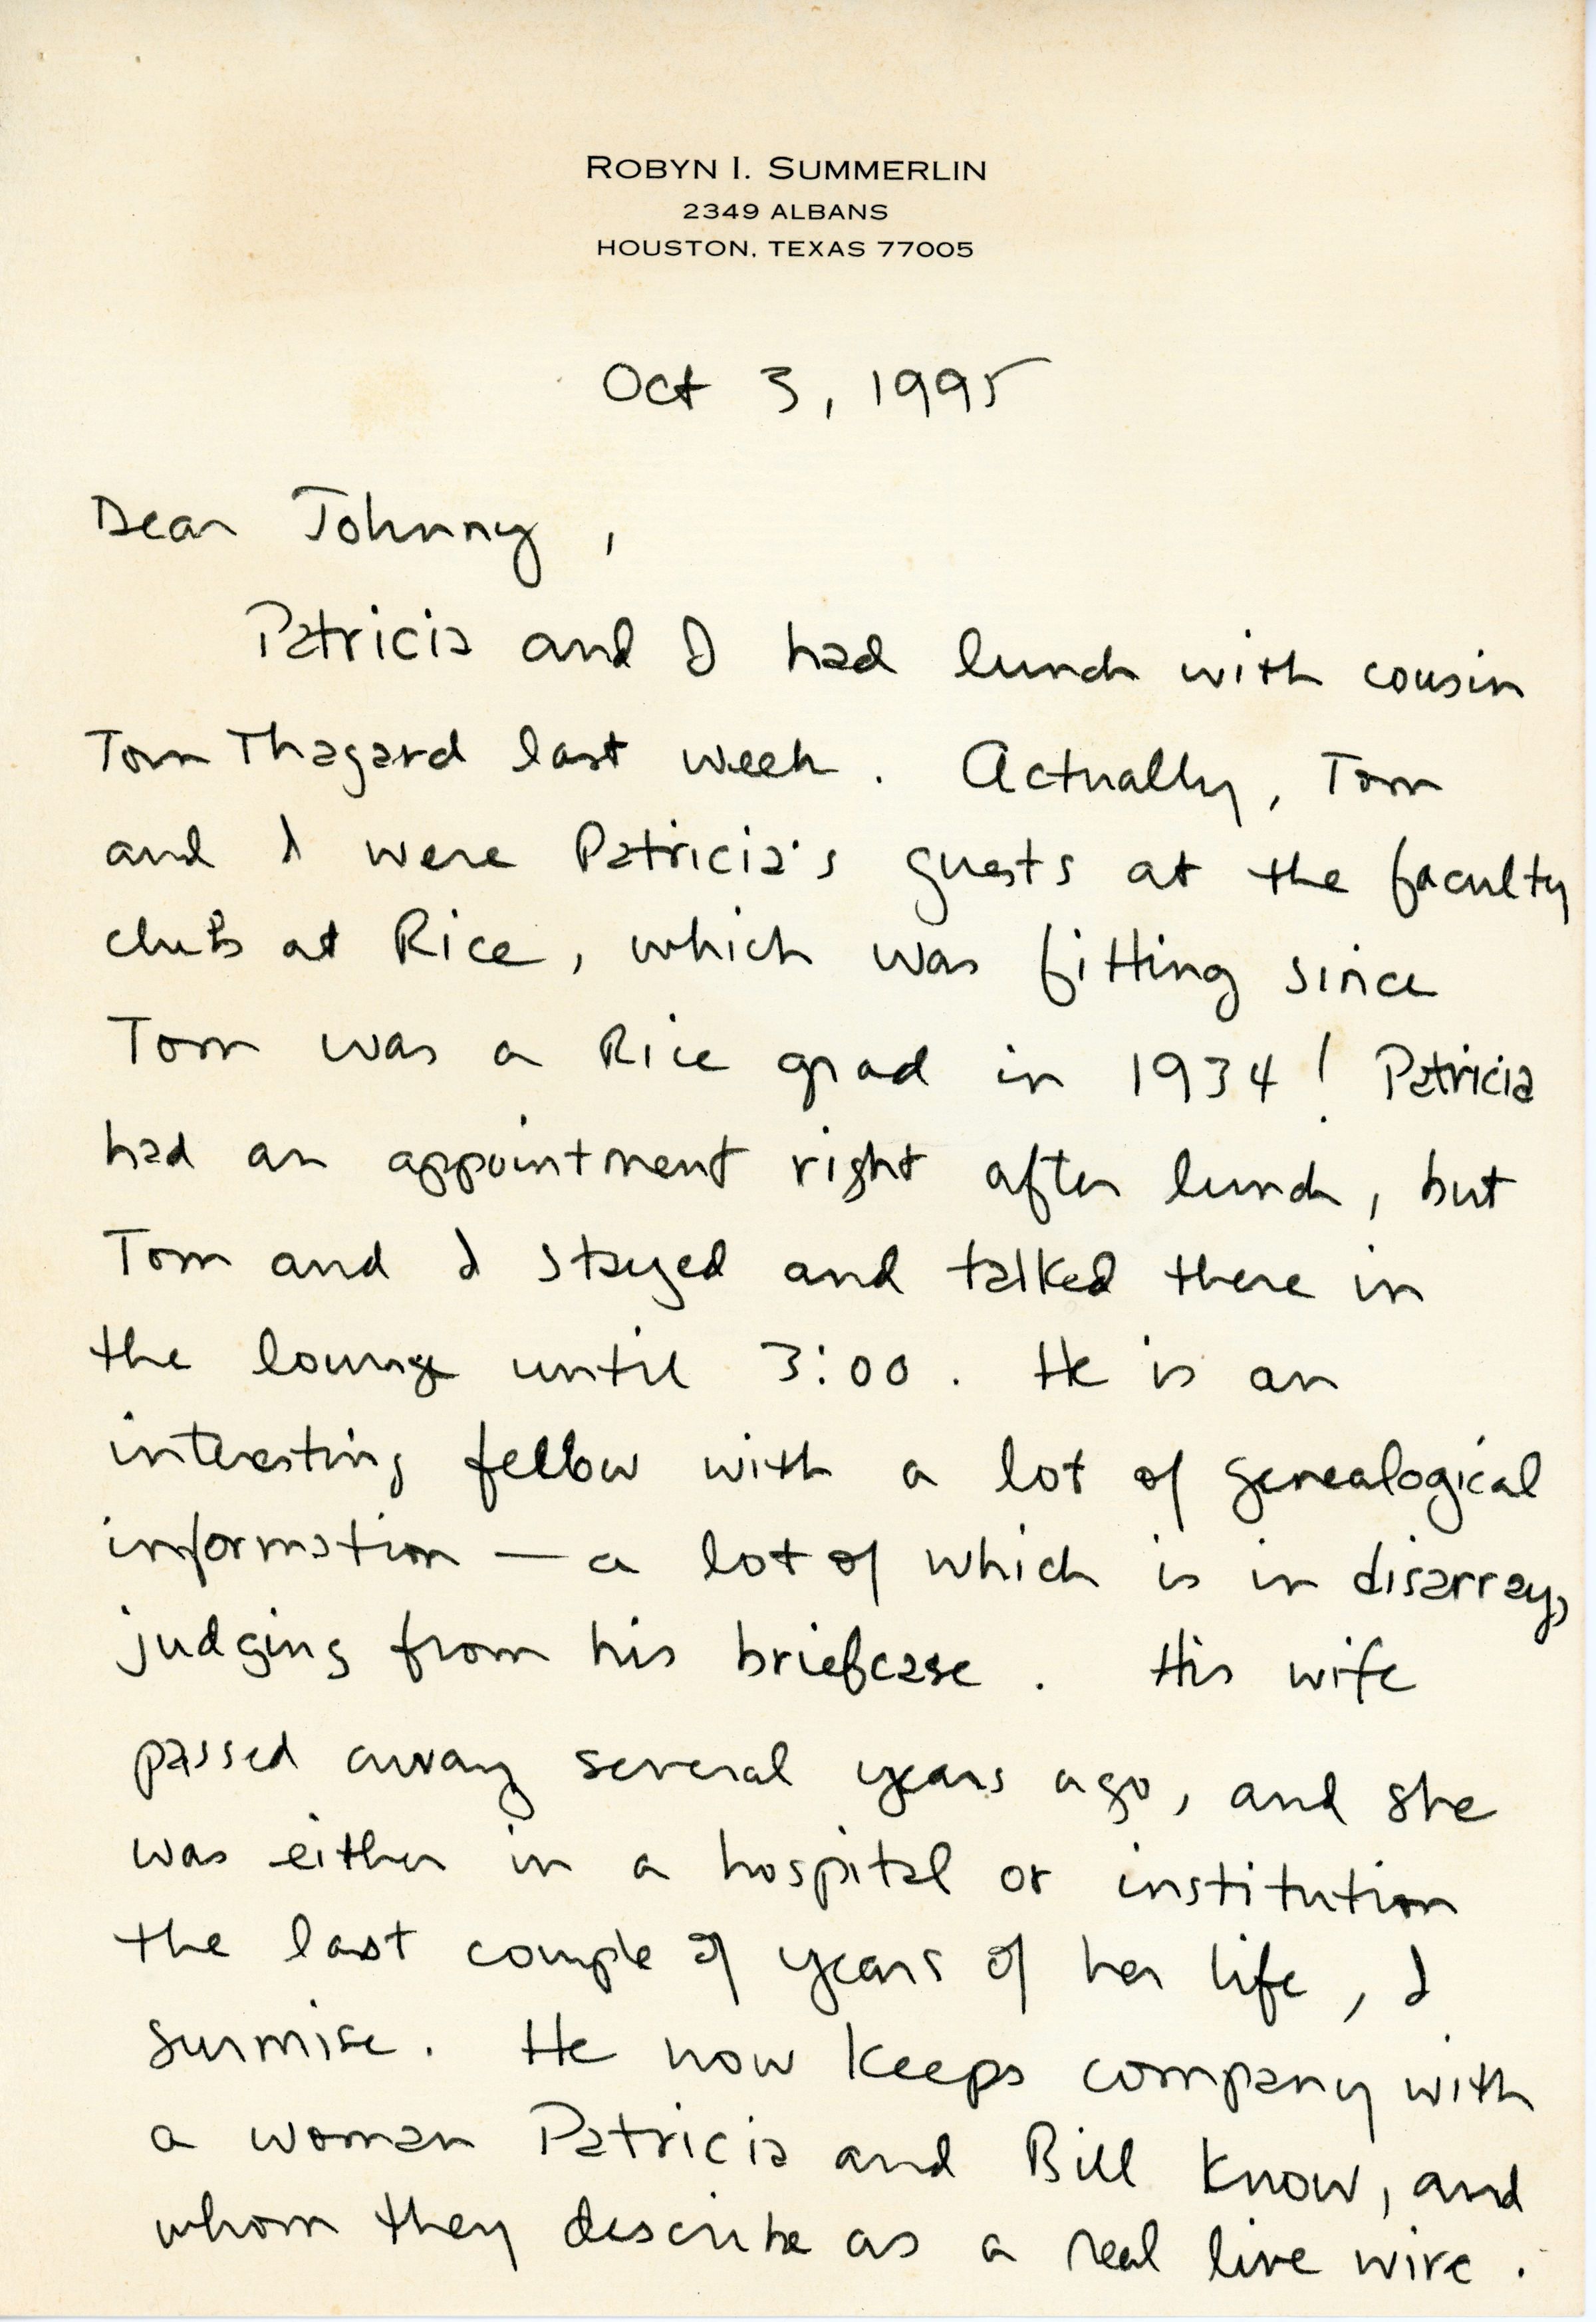 ROBYN I. SUMMERLIN
2349 ALBANS
HOUSTON, TEXAS 77005
Oct 3, 1995
Dear Johnny,
Patricia and I had lunch with cousin
Tom Thagard last week. Actually, Tom
and I were Patricia's guests at the faculty
club at Rice, which was fitting since
Tom was a Rice grad in 1934! Patricia
had an appointment right after lunch, but
Tom and I stayed and talked there in
the lounge until 3:00. He is an
interesting fellow with a lot of genealogical
information — a lot of which is in disarray,
judging from his briefcase. His wife
passed away several years ago, and she
was either in a hospital or institution
the last couple of years of her life, I
surmise. He now keeps company with
a woman Patricia and Bill know, and
whom they describe as a real live wire.